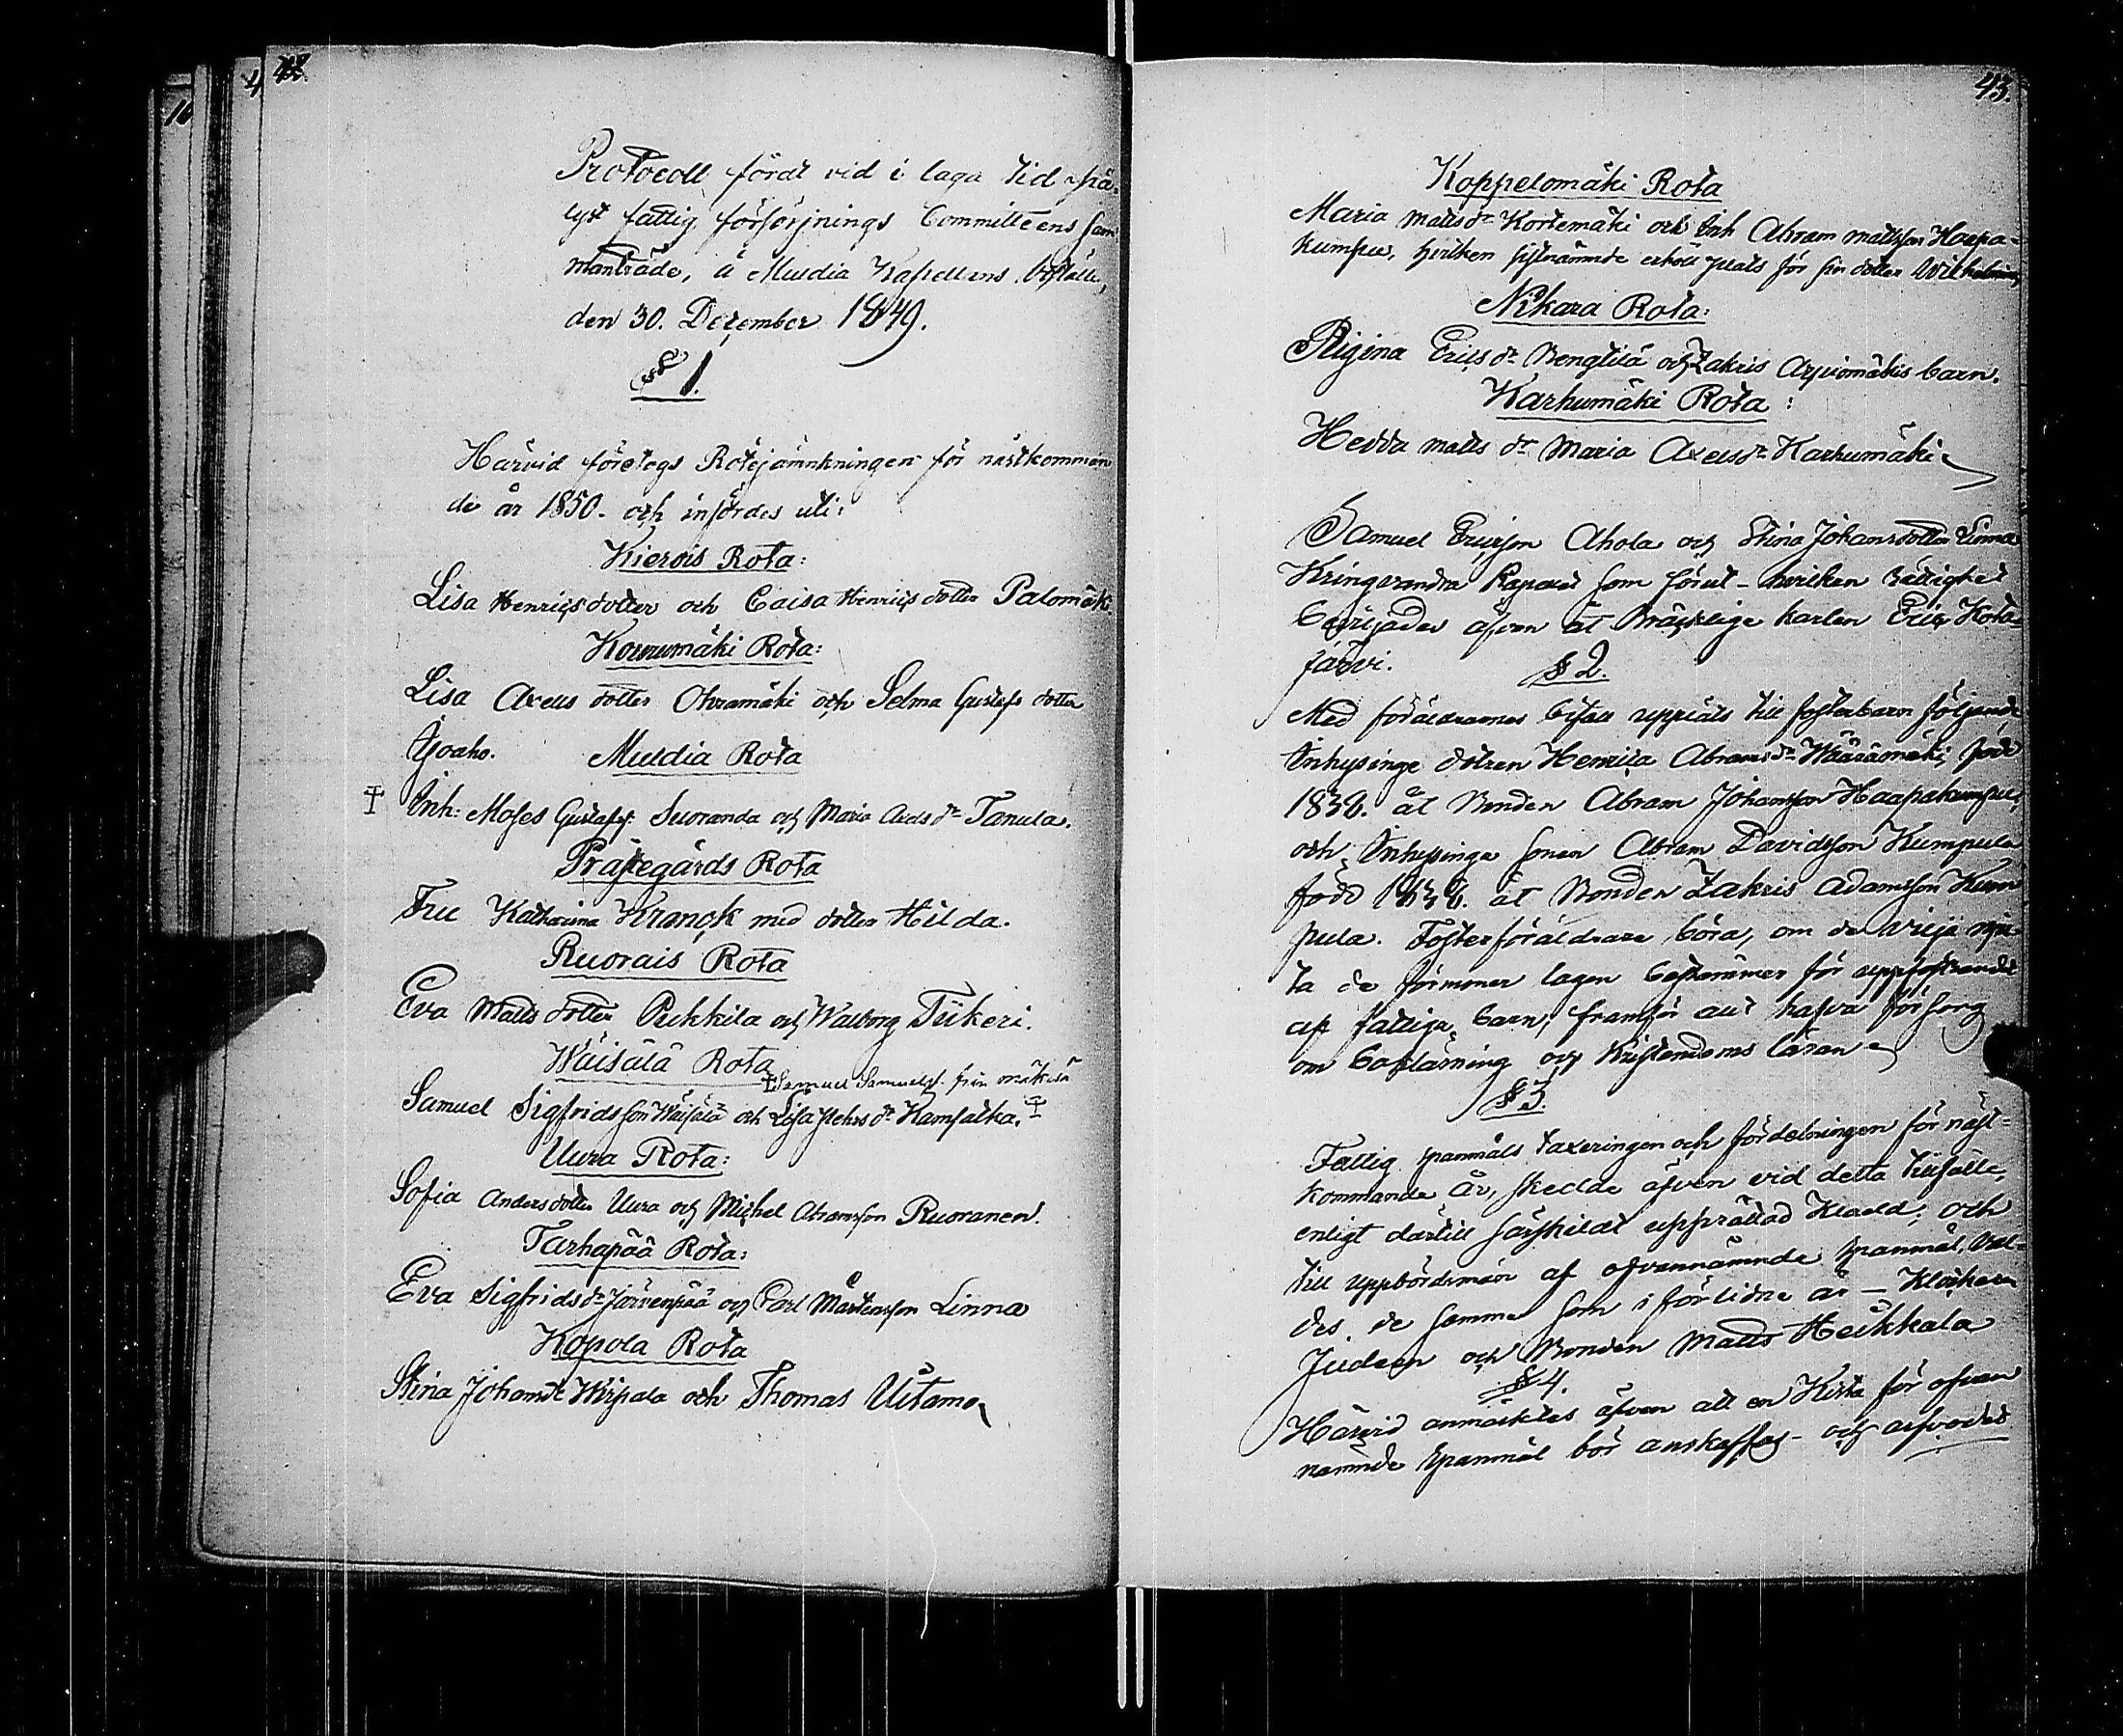 42.
Protocoll fördt vid i laga tid på-
lyst fattig försörjnings Committéens sam-
manträde, å Muldia Kapellans boställe,
den 30. December 1849.
§ 1.
Härvid företogs Rotejämnkningen för nästkomman
de år 1850. och infördes uti:
Kierois Rota:
Lisa Henricsdotter och Caisa Henricsdotter Palomäki
Kornumäki Rota:
Lisa Axels dotter Ohramäki och Selma Gustafs dotter
Isoaho.
Muldia Rota
Inh: Moses Gustafss. Suoranda och Maria Axels dr Tanula.
Prästegårds Rota
Fru Katharina Kranck med dotter Hilda.
Ruorais Rota
Eva Matts dotter Pukkila och Walborg Tükeri.
Wäisälä Rota
Samuel Samuels. från
Samuel Sigfridsson Wäisälä och Lisa Pehrs dr Kamsatka.
Uura Rota:
Sofia Andersdotter Uura och Michel Abramsson Ruoranen.
Tarhapää Rota:
Eva Sigfrids dr Järvenpää och Carl Mårtensson Linna
Kopola Rota
Stina Johans dr Wirpala och Thomas Uitamo
43.
Koppelomäki Rota
Maria Matts dr Kortemäki och Inh Abram Mattsson Haapa-
kumpu, hvilken sistnämnde erhöll plats för sin dotter Wilhelmina,
Nikara Rota:
Rigina Erics dr Bengtilä och Zakris Arpiomäkis barn.
Karhumäki Rota:
Hedda Matts dr Maria Axels dr Karhumäki
Samuel Ericsson Ahola och Stina Johansdotter Linna
Kringvandra Kapellet som förut - hvilken rättighet
beviljades äfven åt bräcklige karlen Eric Kota-
järvi.
§ 2.
Med föräldrarnes bifall uppläts till fosterbarn följande
Inhysinge dotren Henrica Abrams dr Wäärämäki, född
1838. åt Bonden Abram Johansson Haapakumpu,
och Inhysinge sonen Abram Davidsson Kumpula
född 1838. åt Bonden Zakris Adamsson Kum
pula. Fosterföräldrare böra, om de vilja nju-
ta de förmoner lagen bestämmer för uppfostrandet
af fattiga barn, framför allt hafva försorg
om boklärning och Kristendoms läran
§ 3.
Fattig spanmåls taxeringen och fördelningen för näst-
kommande år, skedde äfven vid detta tillfälle,
enligt därtill särskildt upprättad Kladd; och
till uppbördsmän af ofvannämnde spanmål, val-
des de samme som i förlidne år - Klockaren
Judeen och Bonden Matts Heikkala
§ 4.
Härvid anmärktes äfven att en Kista för ofvan
nämnde spanmål bör anskaffas - och arfvodet